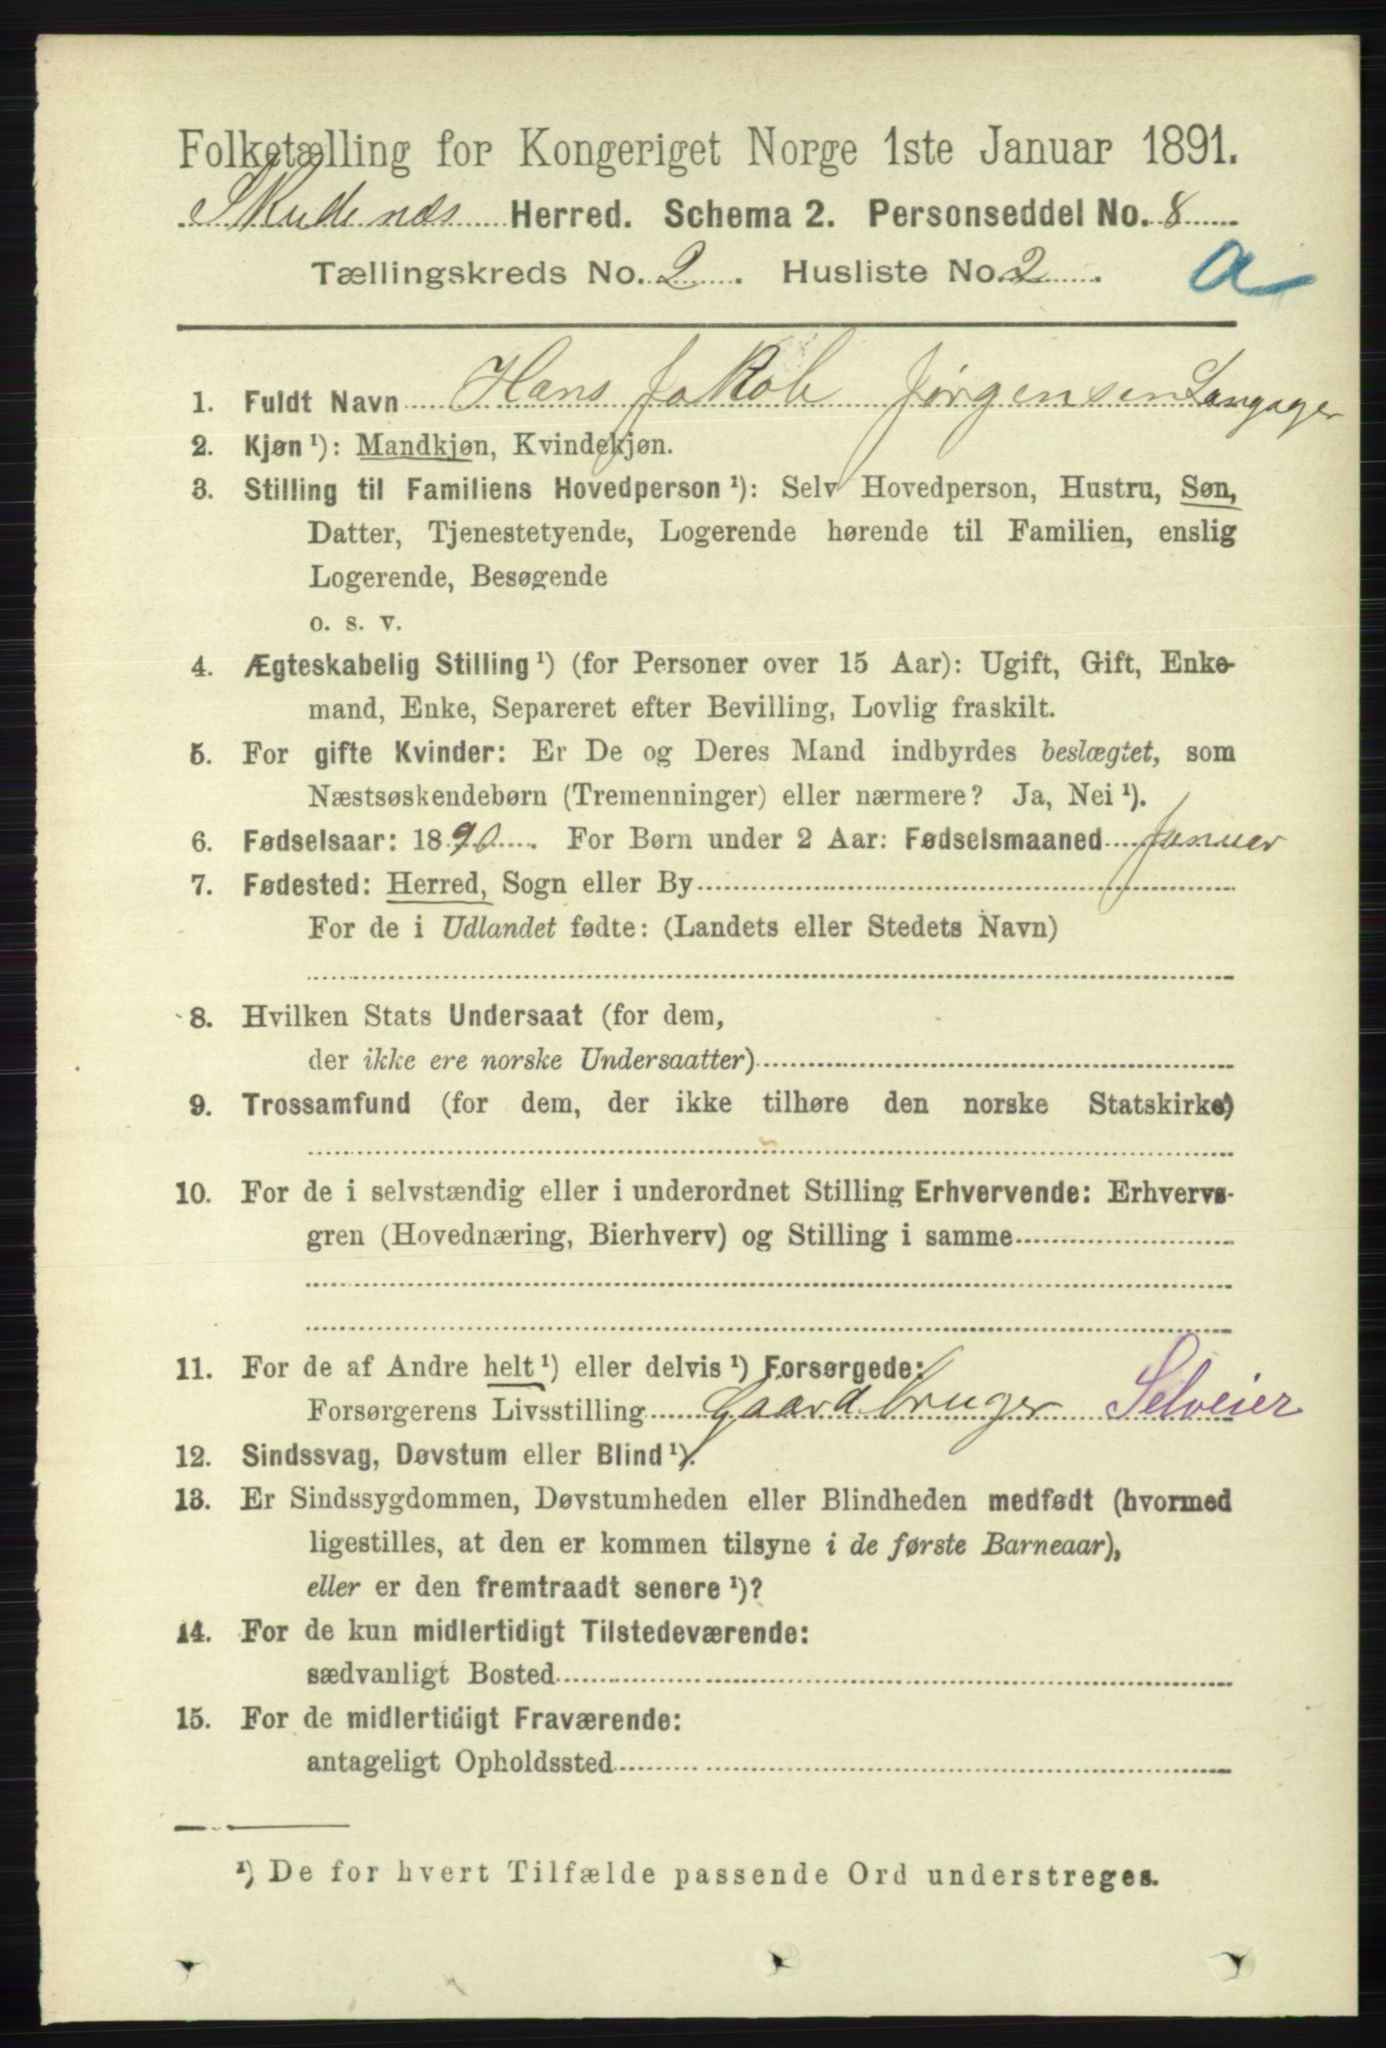 Folketælling for Kongeriget Norge 1ste Januar 1891.
Skudenes Herred. Schema 2. Personseddel No. 8
Tællingskreds No. 2. Husliste No. 2.
a
1. Fuldt Navn Hans Jakob Jørgensen Langager
2. Kjøn ¹): Mandkjøn, Kvindekjøn.
3. Stilling til Familiens Hovedperson ¹): Selv Hovedperson, Hustru, Søn,
Datter, Tjenestetyende, Logerende hørende til Familien, enslig
Logerende, Besøgende
o. s. v.
4. Ægteskabelig Stilling ¹) (for Personer over 15 Aar): Ugift, Gift, Enke-
mand, Enke, Separeret efter Bevilling, Lovlig fraskilt.
5. For gifte Kvinder: Er De og Deres Mand indbyrdes beslægtet, som
Næstsøskendebørn (Tremenninger) eller nærmere? Ja, Nei ¹).
6. Fødselsaar: 1890. For Børn under 2 Aar: Fødselsmaaned Januar
7. Fødested: Herred, Sogn eller By
For de i Udlandet fødte: (Landets eller Stedets Navn)
8. Hvilken Stats Undersaat (for dem,
der ikke ere norske Undersaatter)
9. Trossamfund (for dem, der ikke tilhøre den norske Statskirke)
10. For de i selvstændig eller i underordnet Stilling Erhvervende: Erhvervs-
gren (Hovednæring, Bierhverv) og Stilling i samme
11. For de af Andre helt ¹) eller delvis ¹) Forsørgede:
Forsørgerens Livsstilling Gaardbruger Selveier
12. Sindssvag, Døvstum eller Blind ¹).
13. Er Sindssygdommen, Døvstumheden eller Blindheden medfødt (hvormed
ligestilles, at den er kommen tilsyne i de første Barneaar),
eller er den fremtraadt senere ¹)?
14. For de kun midlertidigt Tilstedeværende:
sædvanligt Bosted
15. For de midlertidigt Fraværende:
antageligt Opholdssted
¹) De for hvert Tilfælde passende Ord understreges.